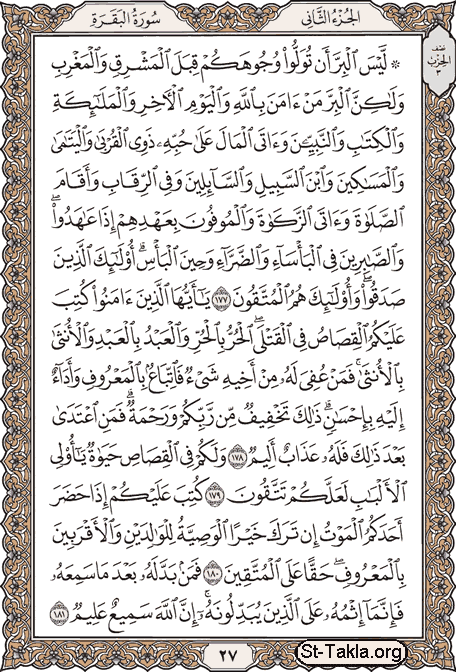 سُورَةُ البَقَرَةِ
الجُزْءُ الثَّانِي
نصف الحزب ٣
۞ لَّيْسَ ٱلْبِرَّ أَن تُوَلُّوا۟ وُجُوهَكُمْ قِبَلَ ٱلْمَشْرِقِ وَٱلْمَغْرِبِ
وَلَٰكِنَّ ٱلْبِرَّ مَنْ ءَامَنَ بِٱللَّهِ وَٱلْيَوْمِ ٱلْءَاخِرِ وَٱلْمَلَٰٓئِكَةِ
وَٱلْكِتَٰبِ وَٱلنَّبِيِّـۧنَ وَءَاتَى ٱلْمَالَ عَلَىٰ حُبِّهِۦ ذَوِى ٱلْقُرْبَىٰ وَٱلْيَتَٰمَىٰ
وَٱلْمَسَٰكِينَ وَٱبْنَ ٱلسَّبِيلِ وَٱلسَّآئِلِينَ وَفِى ٱلرِّقَابِ وَأَقَامَ
ٱلصَّلَوٰةَ وَءَاتَى ٱلزَّكَوٰةَ وَٱلْمُوفُونَ بِعَهْدِهِمْ إِذَا عَٰهَدُوا۟ۖ
وَٱلصَّٰبِرِينَ فِى ٱلْبَأْسَآءِ وَٱلضَّرَّآءِ وَحِينَ ٱلْبَأْسِۗ أُو۟لَٰٓئِكَ ٱلَّذِينَ
صَدَقُوا۟ۖ وَأُو۟لَٰٓئِكَ هُمُ ٱلْمُتَّقُونَ ١٧٧ يَٰٓأَيُّهَا ٱلَّذِينَ ءَامَنُوا۟ كُتِبَ
عَلَيْكُمُ ٱلْقِصَاصُ فِى ٱلْقَتْلَىۖ ٱلْحُرُّ بِٱلْحُرِّ وَٱلْعَبْدُ بِٱلْعَبْدِ وَٱلْأُنثَىٰ
بِٱلْأُنثَىٰۚ فَمَنْ عُفِىَ لَهُۥ مِنْ أَخِيهِ شَىْءٌ فَٱتِّبَاعٌۢ بِٱلْمَعْرُوفِ وَأَدَآءٌ
إِلَيْهِ بِإِحْسَٰنٍۗ ذَٰلِكَ تَخْفِيفٌ مِّن رَّبِّكُمْ وَرَحْمَةٌۗ فَمَنِ ٱعْتَدَىٰ
بَعْدَ ذَٰلِكَ فَلَهُۥ عَذَابٌ أَلِيمٌ ١٧٨ وَلَكُمْ فِى ٱلْقِصَاصِ حَيَوٰةٌ يَٰٓأُو۟لِى
ٱلْأَلْبَٰبِ لَعَلَّكُمْ تَتَّقُونَ ١٧٩ كُتِبَ عَلَيْكُمْ إِذَا حَضَرَ
أَحَدَكُمُ ٱلْمَوْتُ إِن تَرَكَ خَيْرًا ٱلْوَصِيَّةُ لِلْوَٰلِدَيْنِ وَٱلْأَقْرَبِينَ
بِٱلْمَعْرُوفِۖ حَقًّا عَلَى ٱلْمُتَّقِينَ ١٨٠ فَمَنۢ بَدَّلَهُۥ بَعْدَ مَا سَمِعَهُۥ
فَإِنَّمَآ إِثْمُهُۥ عَلَى ٱلَّذِينَ يُبَدِّلُونَهُۥٓۚ إِنَّ ٱللَّهَ سَمِيعٌ عَلِيمٌ ١٨١
٢٧
St-Takla.org